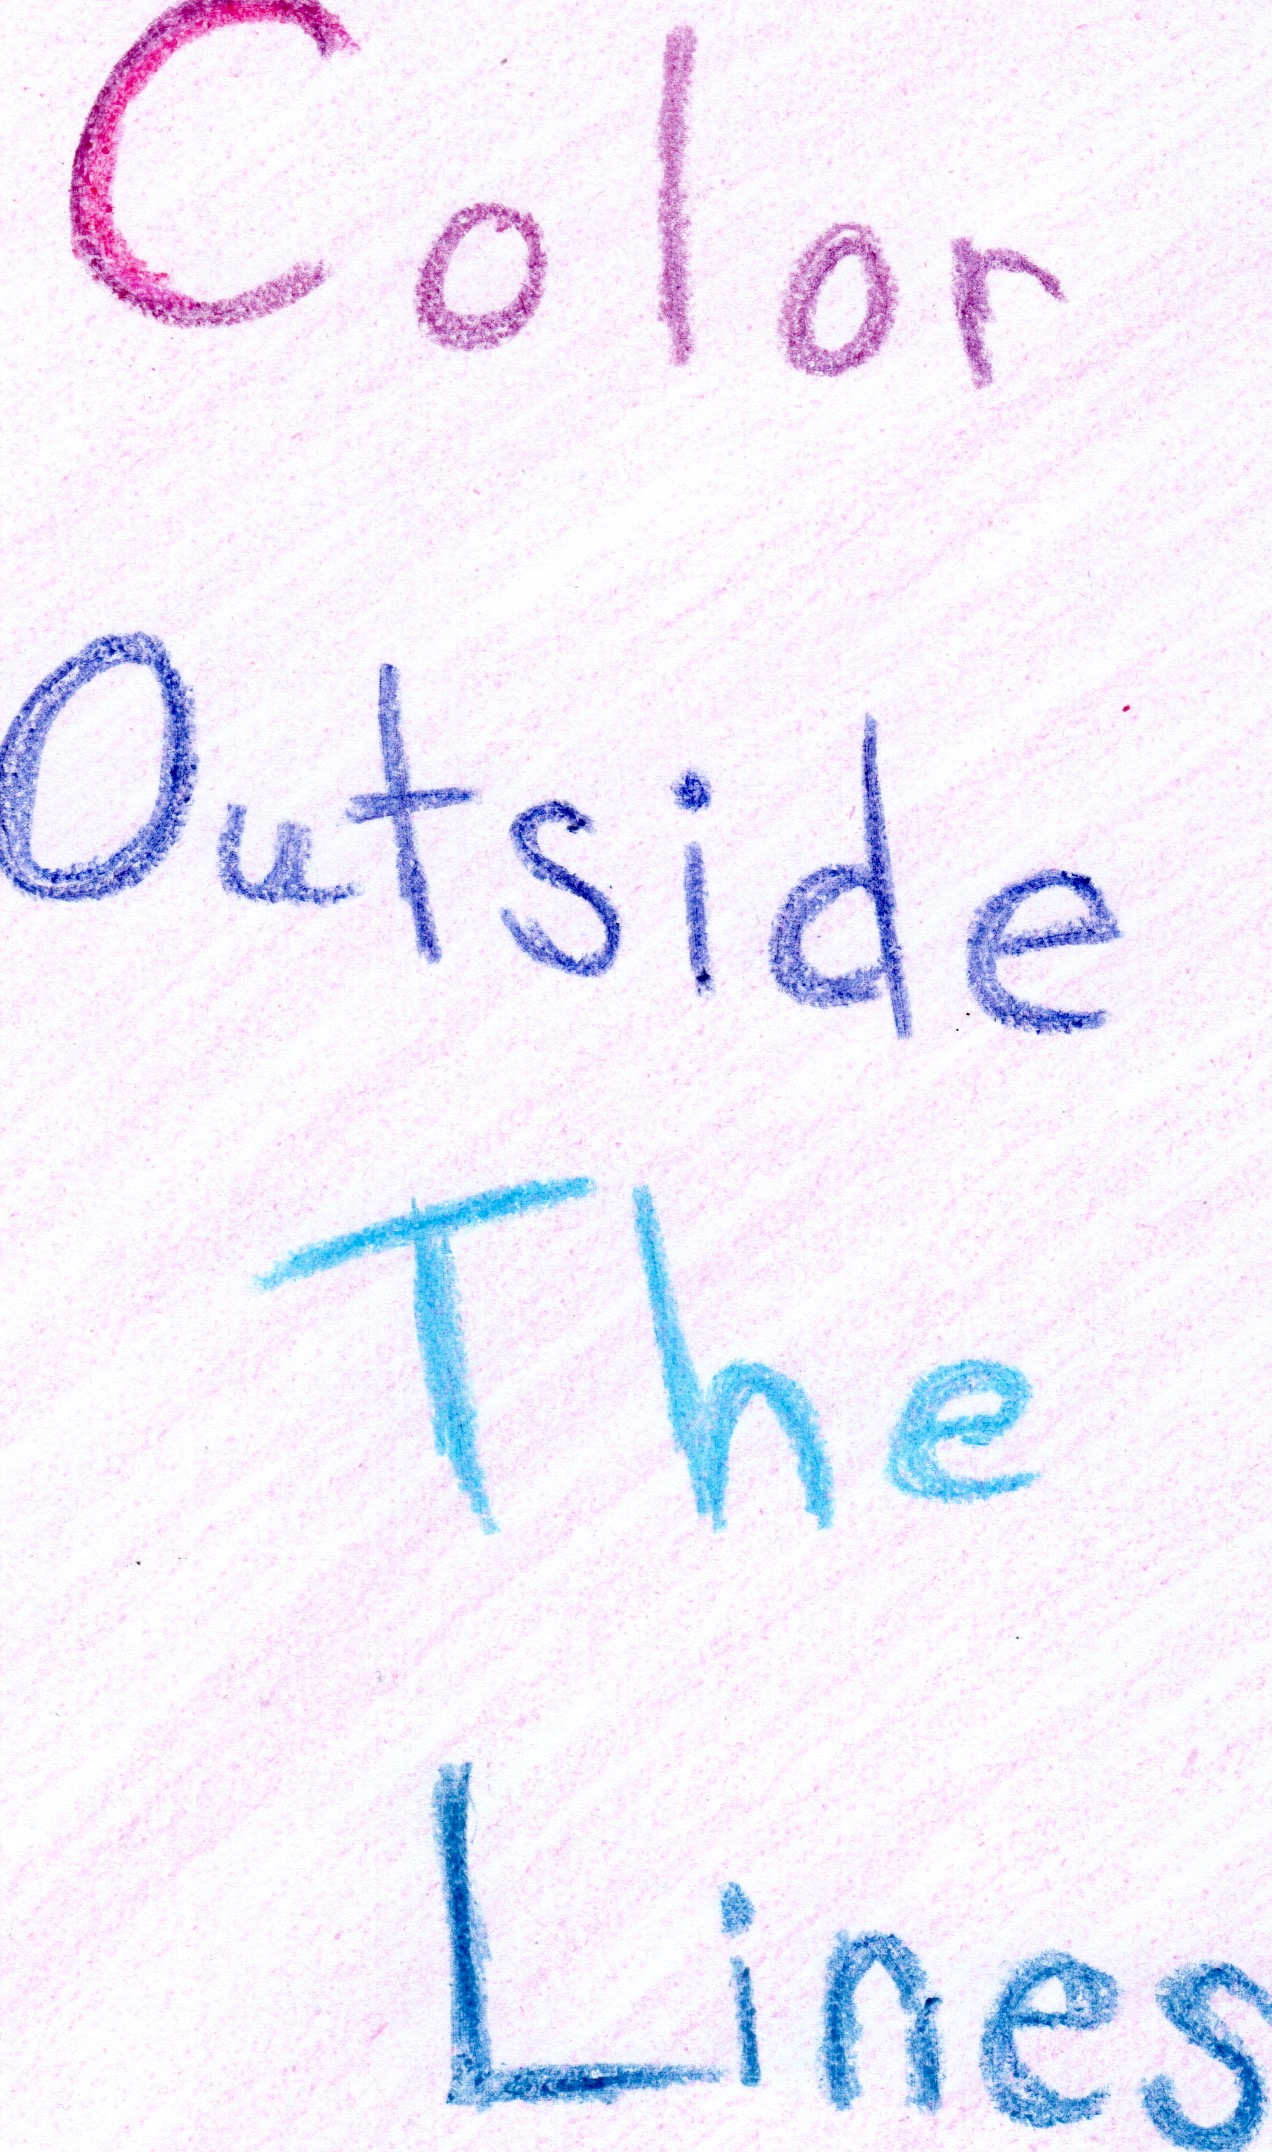 Color
Outside
The
Lines